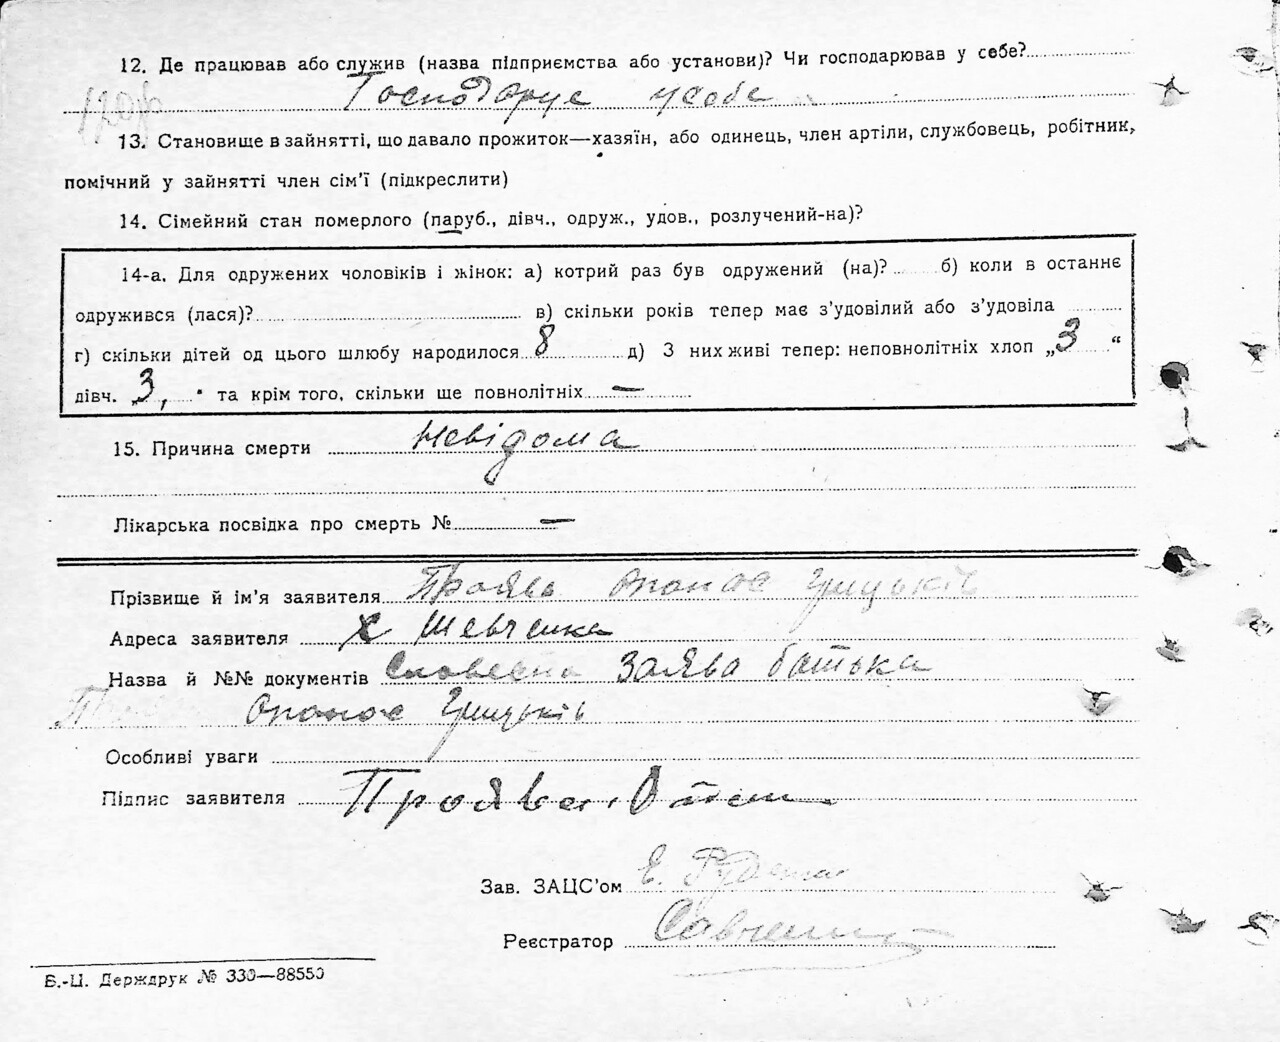 12. Де працював або служив (назва підприємства або установи)? Чи господарював у себе?
Господарує у себе
13. Становище в зайнятті, що давало прожиток—хазяїн, або одинець, член артіли, службовець, робітник,
помічний у зайнятті член сім'ї (підкреслити)
14. Сімейний стан померлого (паруб., дівч., одруж., удов., розлучений-на)?
14-а. Для одружених чоловіків і жінок: а) котрий раз був одружений (на)? б) коли в останнє
одружився (лася)? в) скільки років тепер має з'удовілий або з'удовіла
г) скільки дітей од цього шлюбу народилося 8 д) З них живі тепер: неповнолітніх хлоп „3“
дівч. „3, та крім того, скільки ще повнолітніх —
15. Причина смерти Невідома
Лікарська посвідка про смерть № —
Прізвище й ім'я заявителя Проява Опанас Грицьків
Адреса заявителя х Шевченка
Назва й №№ документів Словесна заява батька
Опанас Грицьків
Особливі уваги
Підпис заявителя Проява
Зав. ЗАЦС'ом Є.
Реєстратор
Б.-Ц. Держдрук № 330—88550